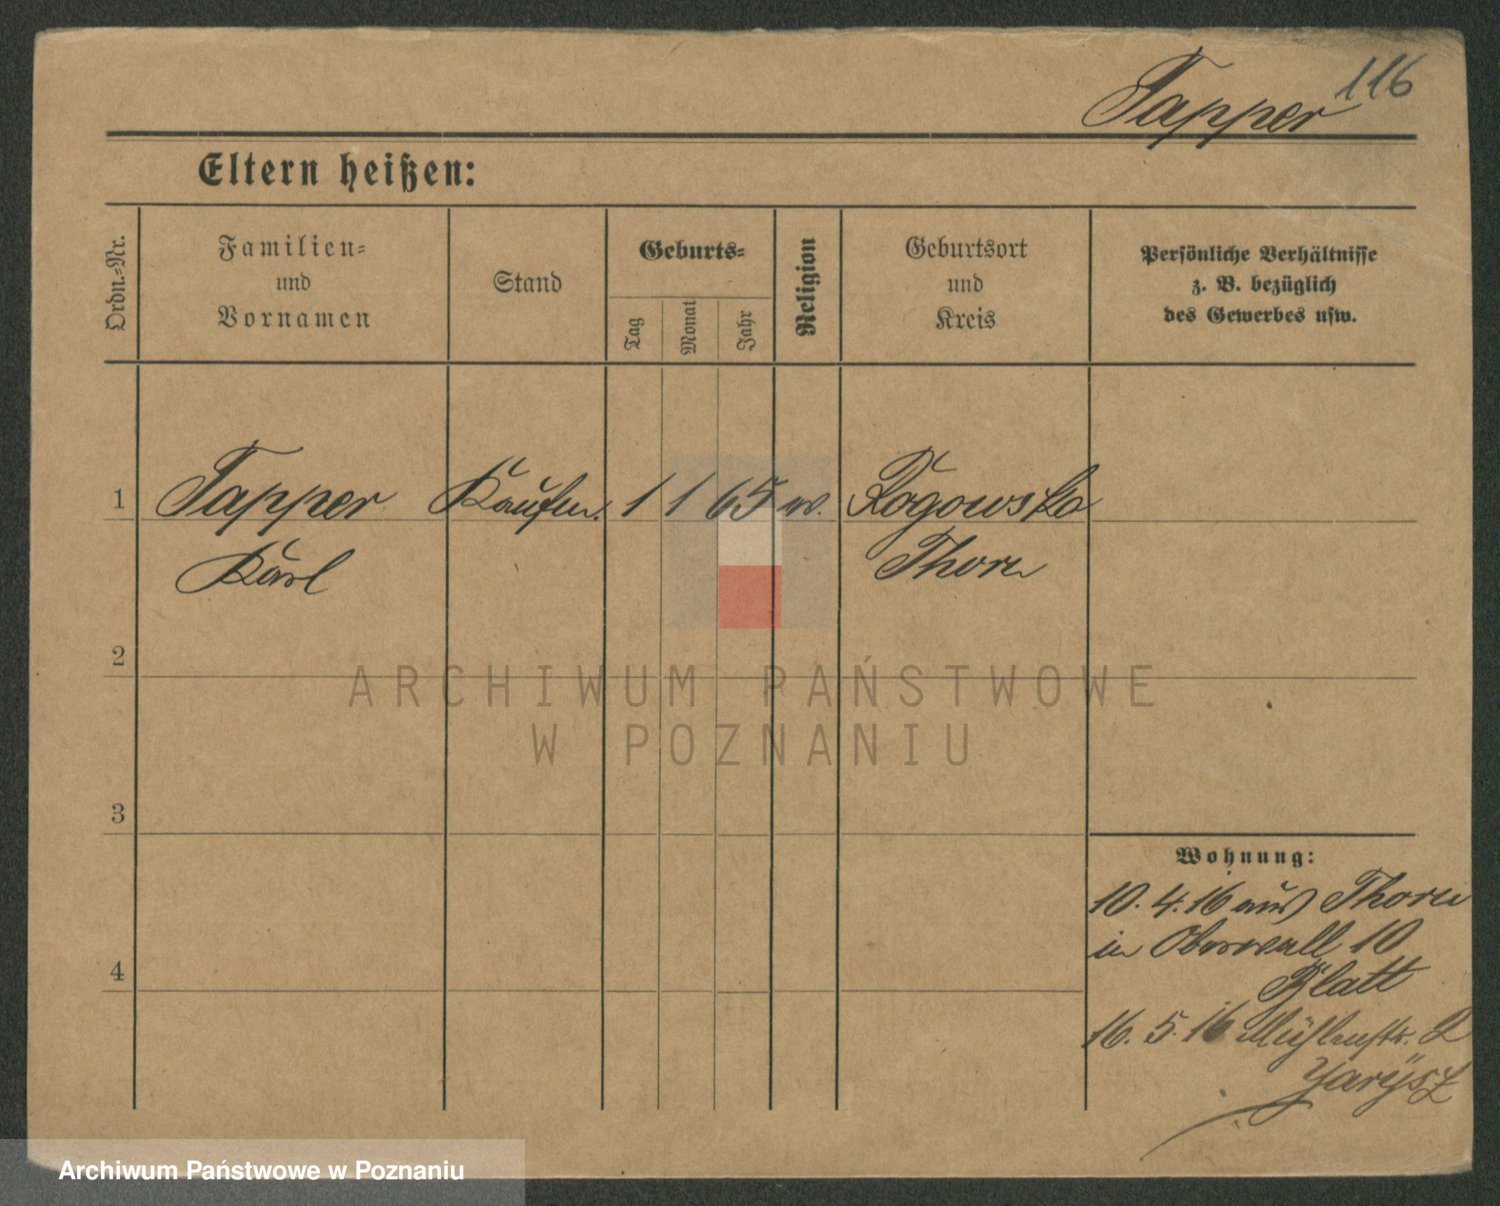 Tapper 116
Eltern heißen:
Ordn.-Nr.
Familien-
und
Vornamen
Stand
Geburts-
Tag
Monat
Jahr
Religion
Geburtsort
und
Kreis
Persönliche Verhältnisse
z. B. bezüglich
des Gewerbes usw.
1 Tapper Kaufm. 1 1 65 Rogowsko
Karl Thorn
2
3
4
Wohnung:
10. 4. 16 aus Thorn
in Oberwall 10
Blatt
16. 5. 16 Mühlenstr. 2
ARCHIWUM PAŃSTWOWE
W POZNANIU
Archiwum Państwowe w Poznaniu